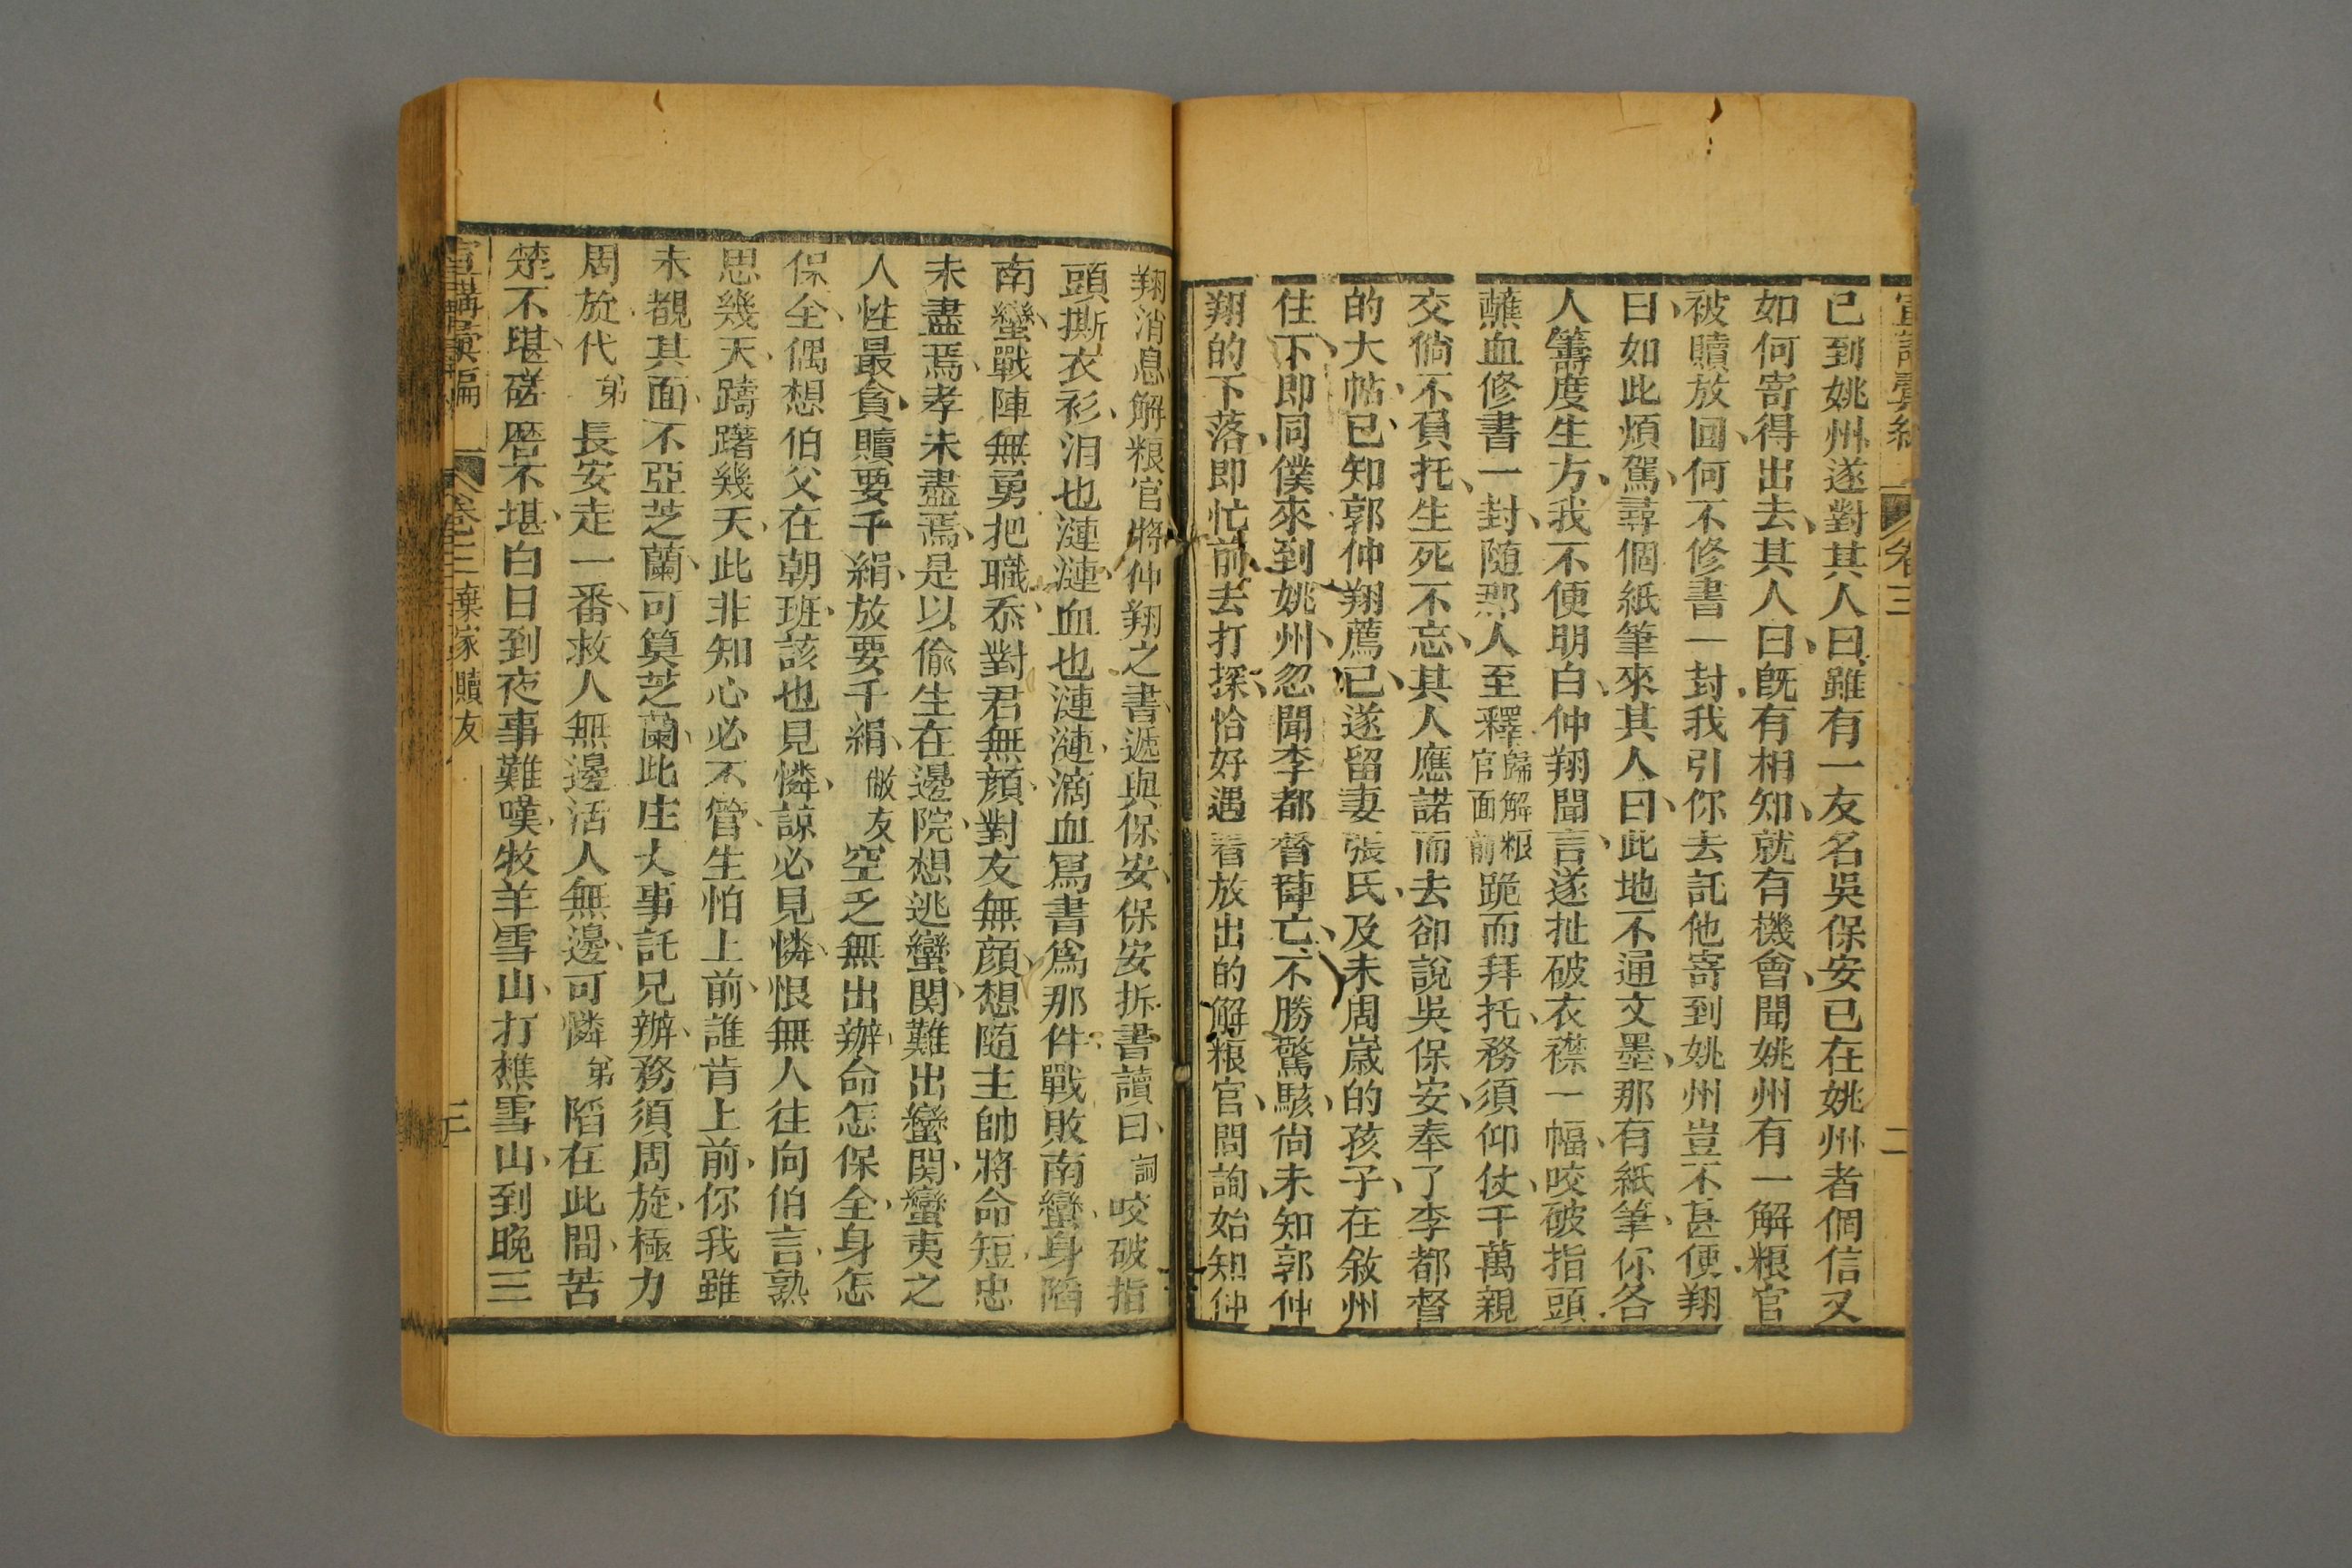 宣講彙編 卷三 二
已到姚州遂對其人曰雖有一友名吳保安已在姚州者個信又
如何寄得出去其人曰旣有相知就有機會聞姚州有一解粮官
被贖放回何不修書一封我引你去託他寄到姚州豈不甚便翔
曰如此煩駕尋個紙筆來其人曰此地不通文墨那有紙筆你各
人籌度生方我不便明白仲翔聞言遂扯破衣襟一幅咬破指頭
蘸血修書一封隨那人至釋歸解粮官面前跪而拜托務須仰仗千萬親
交倘不負托生死不忘其人應諾而去卻說吳保安奉了李都督
的大帖已知郭仲翔薦已遂留妻張氏及未周嵗的孩子在敘州
住下即同僕來到姚州忽聞李都督陣亡不勝驚駭尙未知郭仲
翔的下落即忙前去打探恰好遇着放出的解粮官問詢始知仲
翔消息解粮官將仲翔之書遞與保安保安拆書讀曰詞咬破指
頭撕衣衫泪也漣漣血也漣漣滴血寫書爲那件戰敗南蠻身陷
南蠻戰陣無勇把職忝對君無顔對友無顔想隨主帥將命短忠
未盡焉孝未盡焉是以偷生在邊院想逃蠻関難出蠻関蠻夷之
人性最貪贖要千絹放要千絹敝友空乏無出辦命怎保全身怎
保全偶想伯父在朝班該也見憐諒必見憐恨無人往向伯言熟
思幾天躊躇幾天此非知心必不管生怕上前誰肯上前你我雖
未覩其面不亞芝蘭可算芝蘭此庄大事託兄辦務須周旋極力
周旋代弟長安走一番救人無邊活人無邊可憐弟陷在此間苦
楚不堪磋磨不堪白日到夜事難嘆牧羊雪山打樵雪山到晚三
宣講彙編 卷三 棄家贖友 三